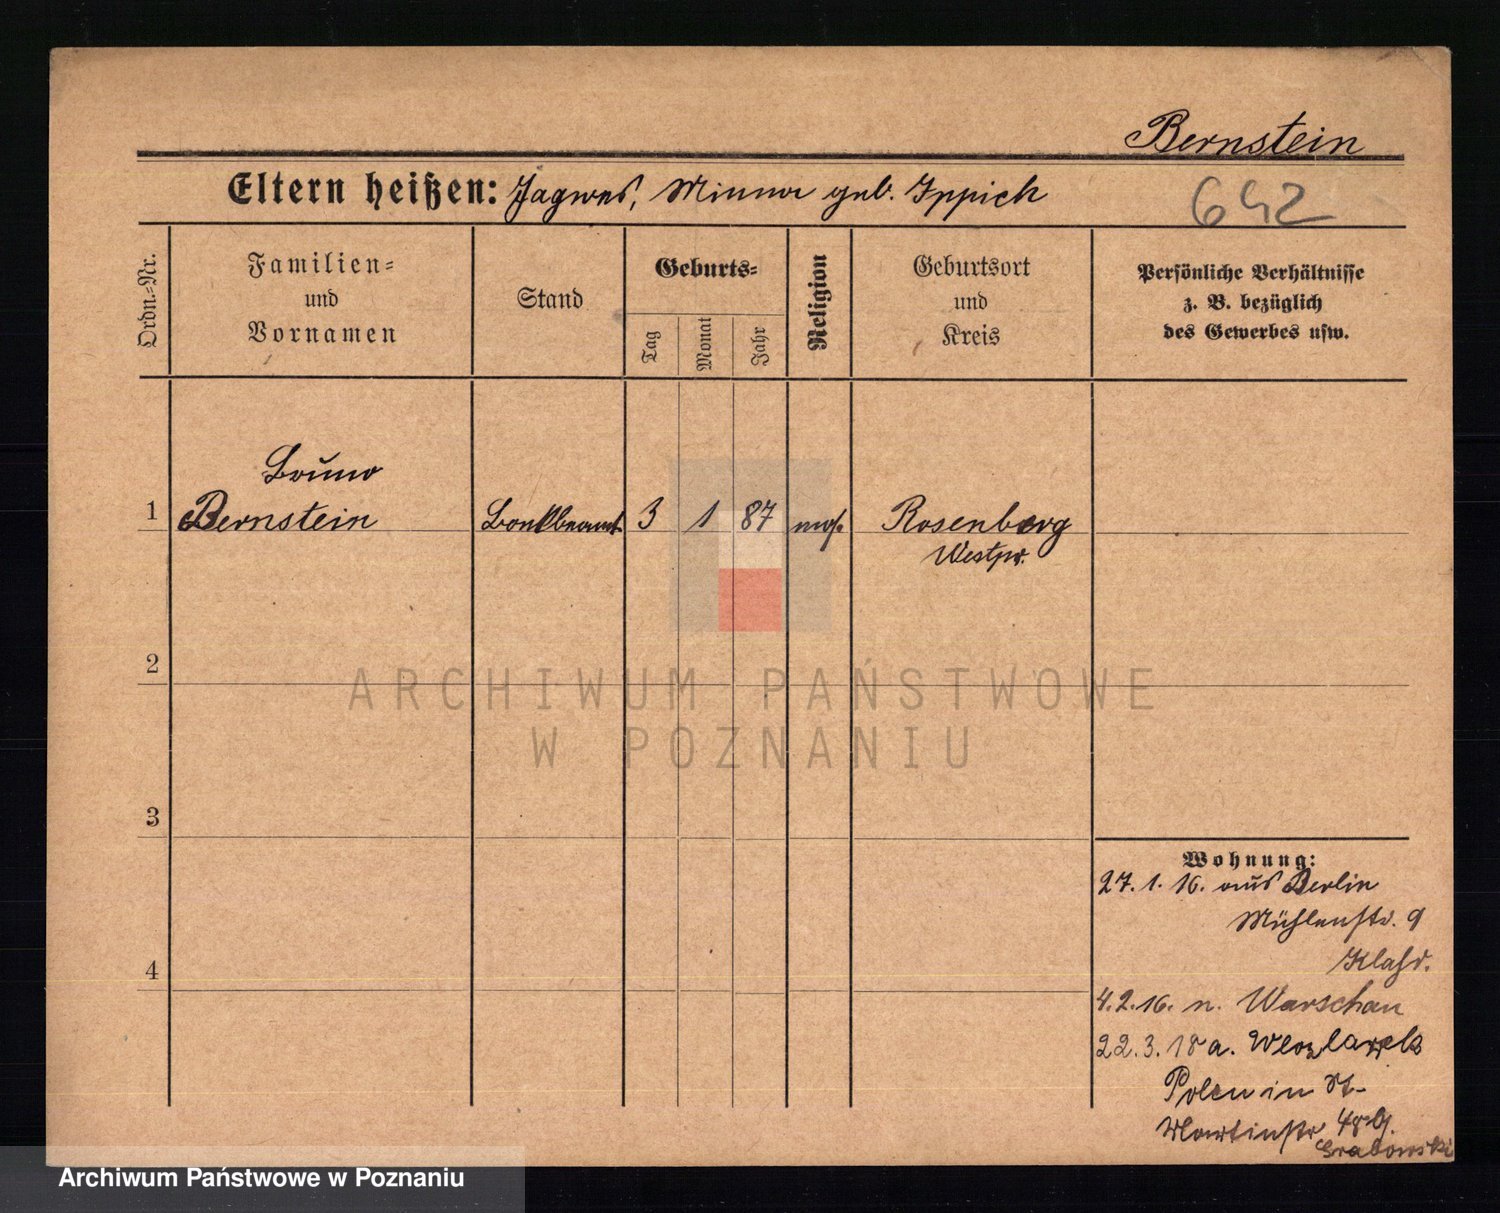 Bernstein
Eltern heißen: Minna geb. Ippich
642
Ordn.=Nr.
Familien=
und
Vornamen
Stand
Geburts=
Tag
Monat
Jahr
Religion
Geburtsort
und
Kreis
Persönliche Verhältnisse
z. B. bezüglich
des Gewerbes usw.
Bruno
1 Bernstein Bankbeamt. 3 1 87 mos. Rosenberg
Westpr.
2
ARCHIWUM PAŃSTWOWE
W POZNANIU
3
Wohnung:
27. 1. 16. aus Berlin
Mühlenstr. 9
4
4. 2. 16. n. Warschau
22. 3. 18 a. Wlozlawek
Polen in St.
Martinstr 48 b.
Grabowski
Archiwum Państwowe w Poznaniu